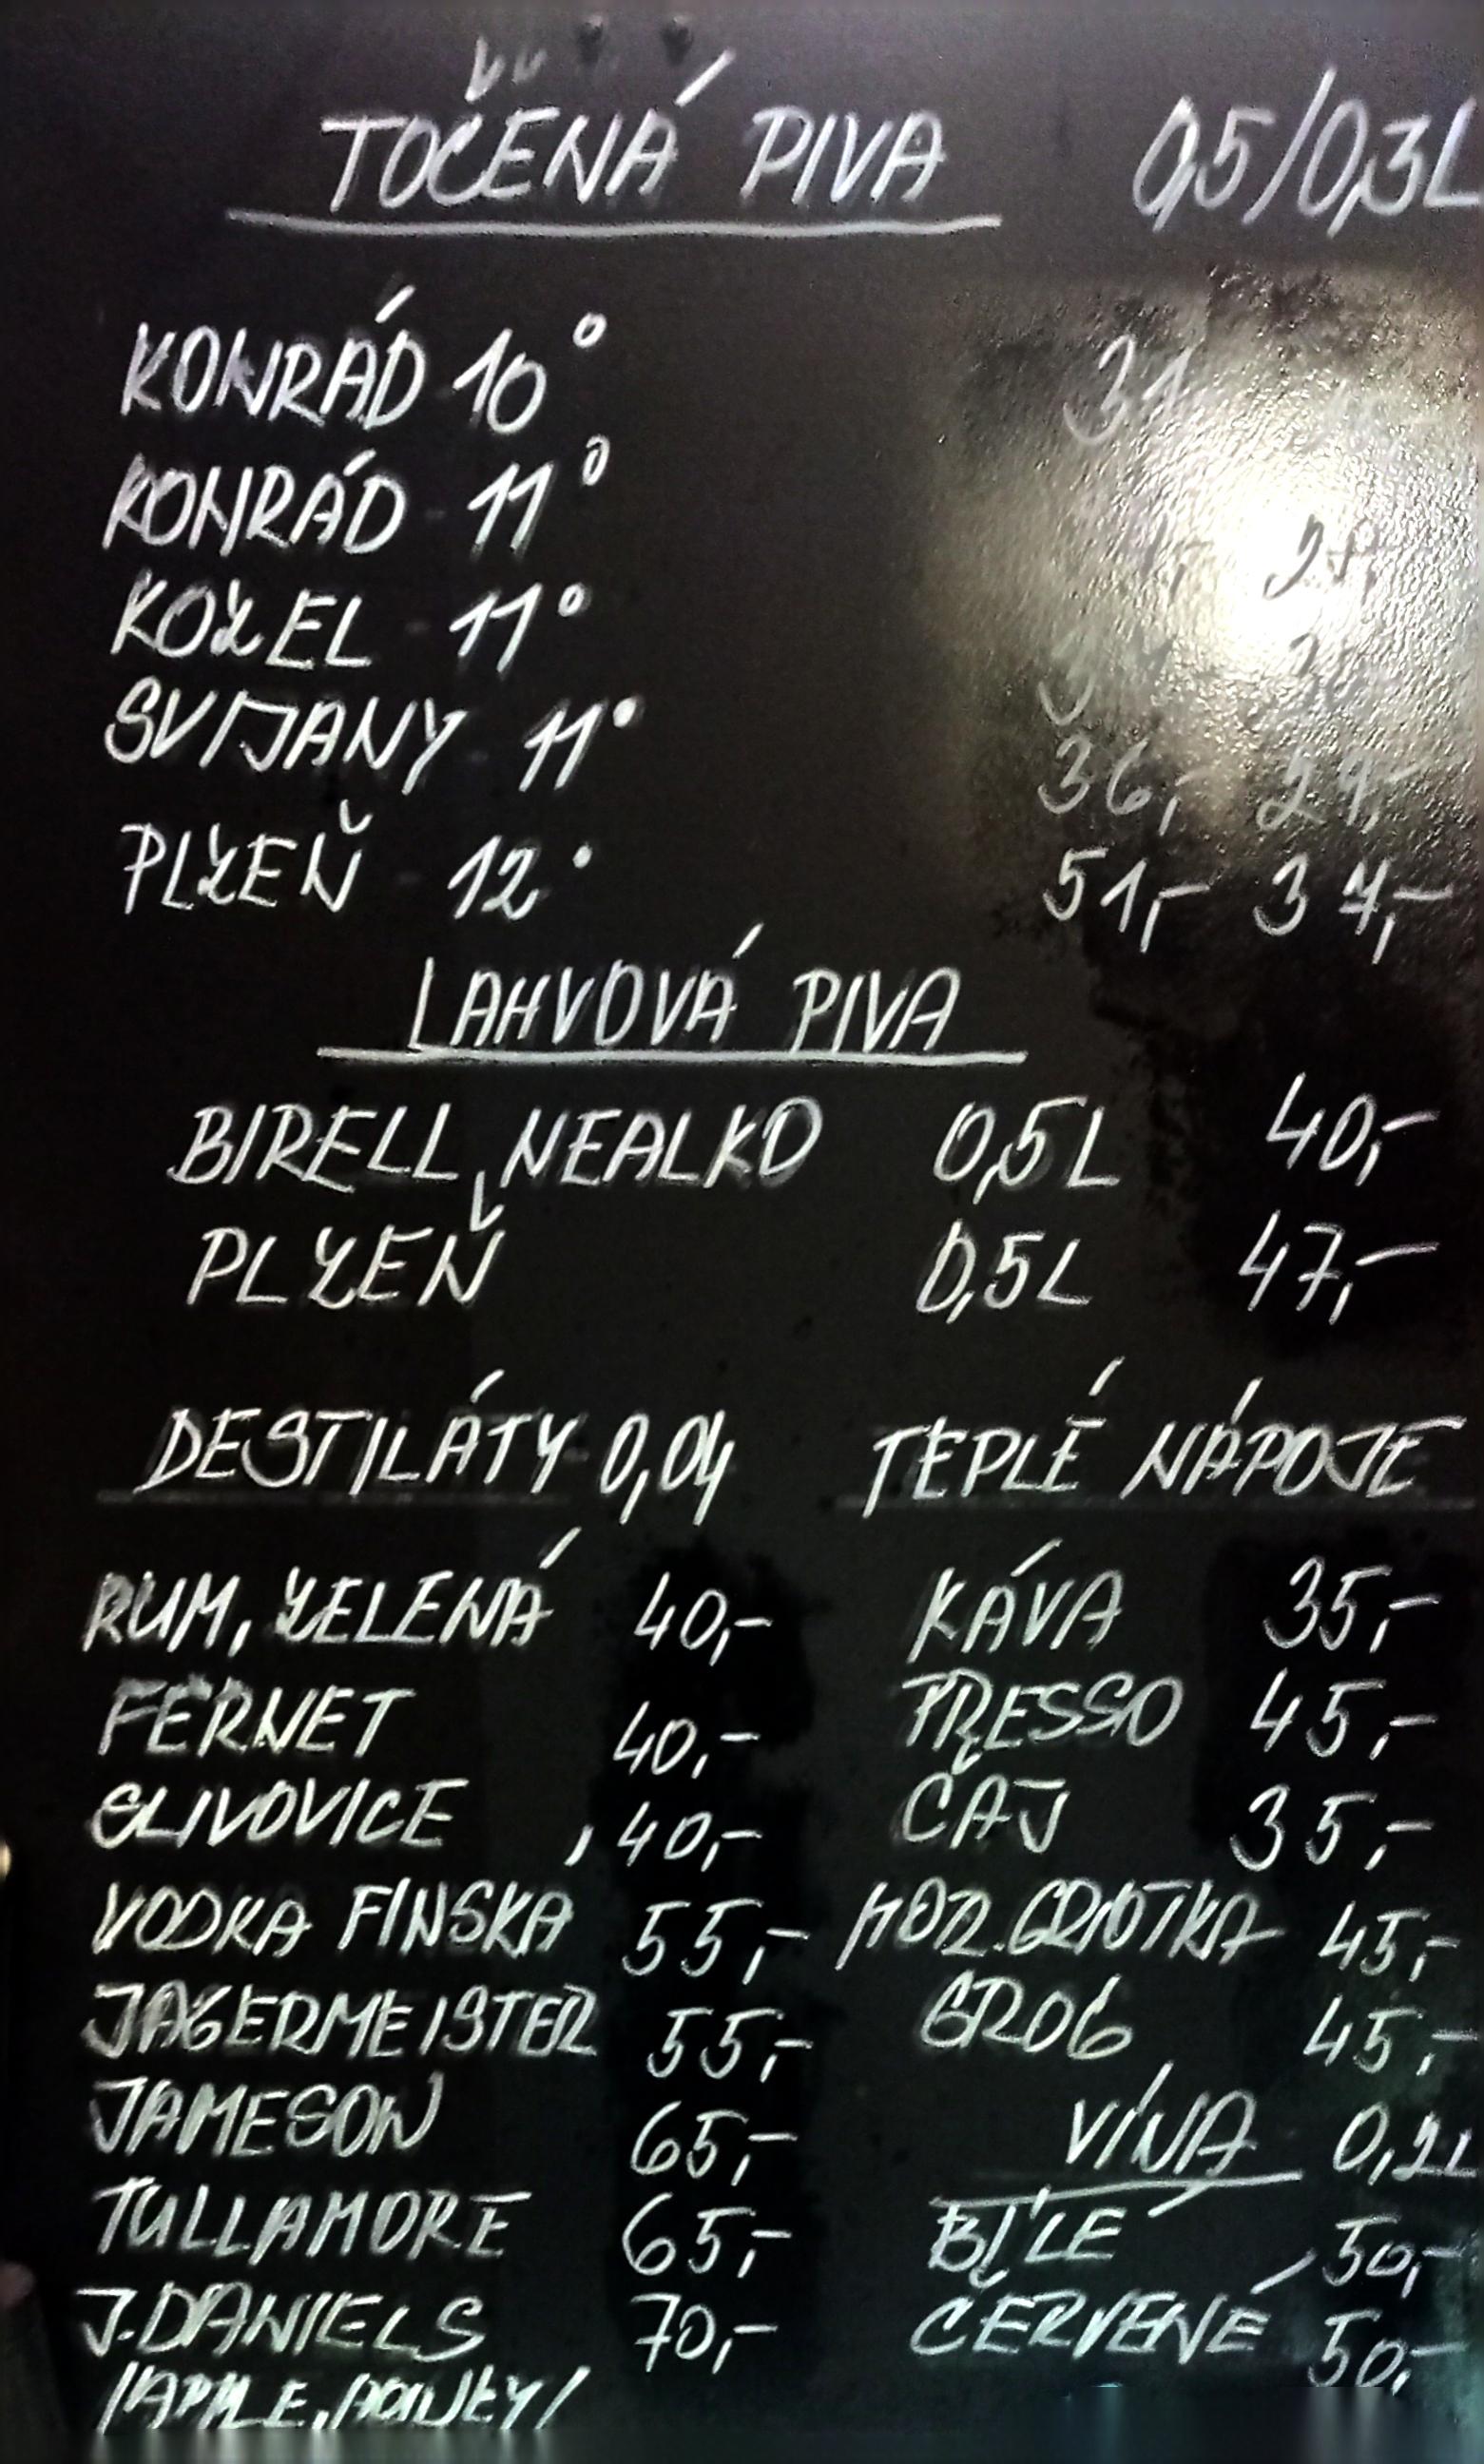 TOČENÁ PIVA 0,5/0,3L
KONRÁD 10° 31
KONRÁD - 11°
KOZEL - 11°
SVIJANY - 11° 36,- 27,-
PLZEŇ - 12° 51,- 37,-
LAHVOVÁ PIVA
BIRELL, NEALKO 0,5L 40,-
PLZEŇ 0,5L 47,-
DESTILÁTY 0,04 TEPLÉ NÁPOJE
RUM, ZELENÁ 40,- KÁVA 35,-
FERNET 40,- PRESSO 45,-
SLIVOVICE 40,- ČAJ 35,-
VODKA FINSKÁ 55,- HOR. GRIOTKA 45,-
JAGERMEISTER 55,- GROG 45,-
JAMESON 65,- VÍNA 0,2L
TULLAMORE 65,- BÍLÉ 50,-
J.DANIELS 70,- ČERVENÉ 50,-
/APPLE, HONEY/